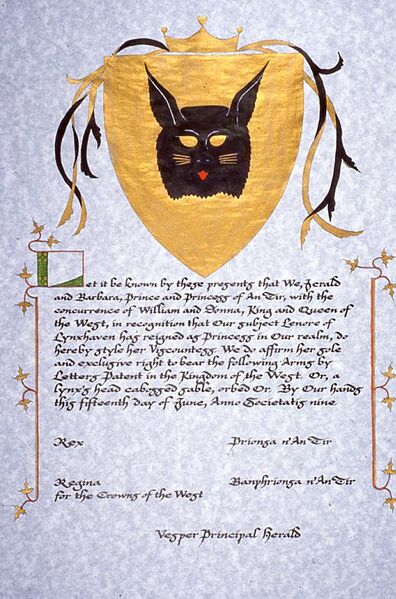 Let it be known by these presents that We, Gerald
and Barbara, Prince and Princess of An Tir, with the
concurrence of William and Donna, King and Queen of
the West, in recognition that Our subject Lenore of
Lynxhaven has reigned as Princess in Our realm, do
hereby style her Viscountess. We do affirm her sole
and exclusive right to bear the following Arms by
Letters Patent in the Kingdom of the West: Or, a
lynx's head cabossed sable, orbed Or. By Our hands
this fifteenth day of June, Anno Societatis nine
Rex Prionsa n'An Tir
Regina Banphrionsa n'An Tir
for the Crowns of the West
Vesper Principal Herald